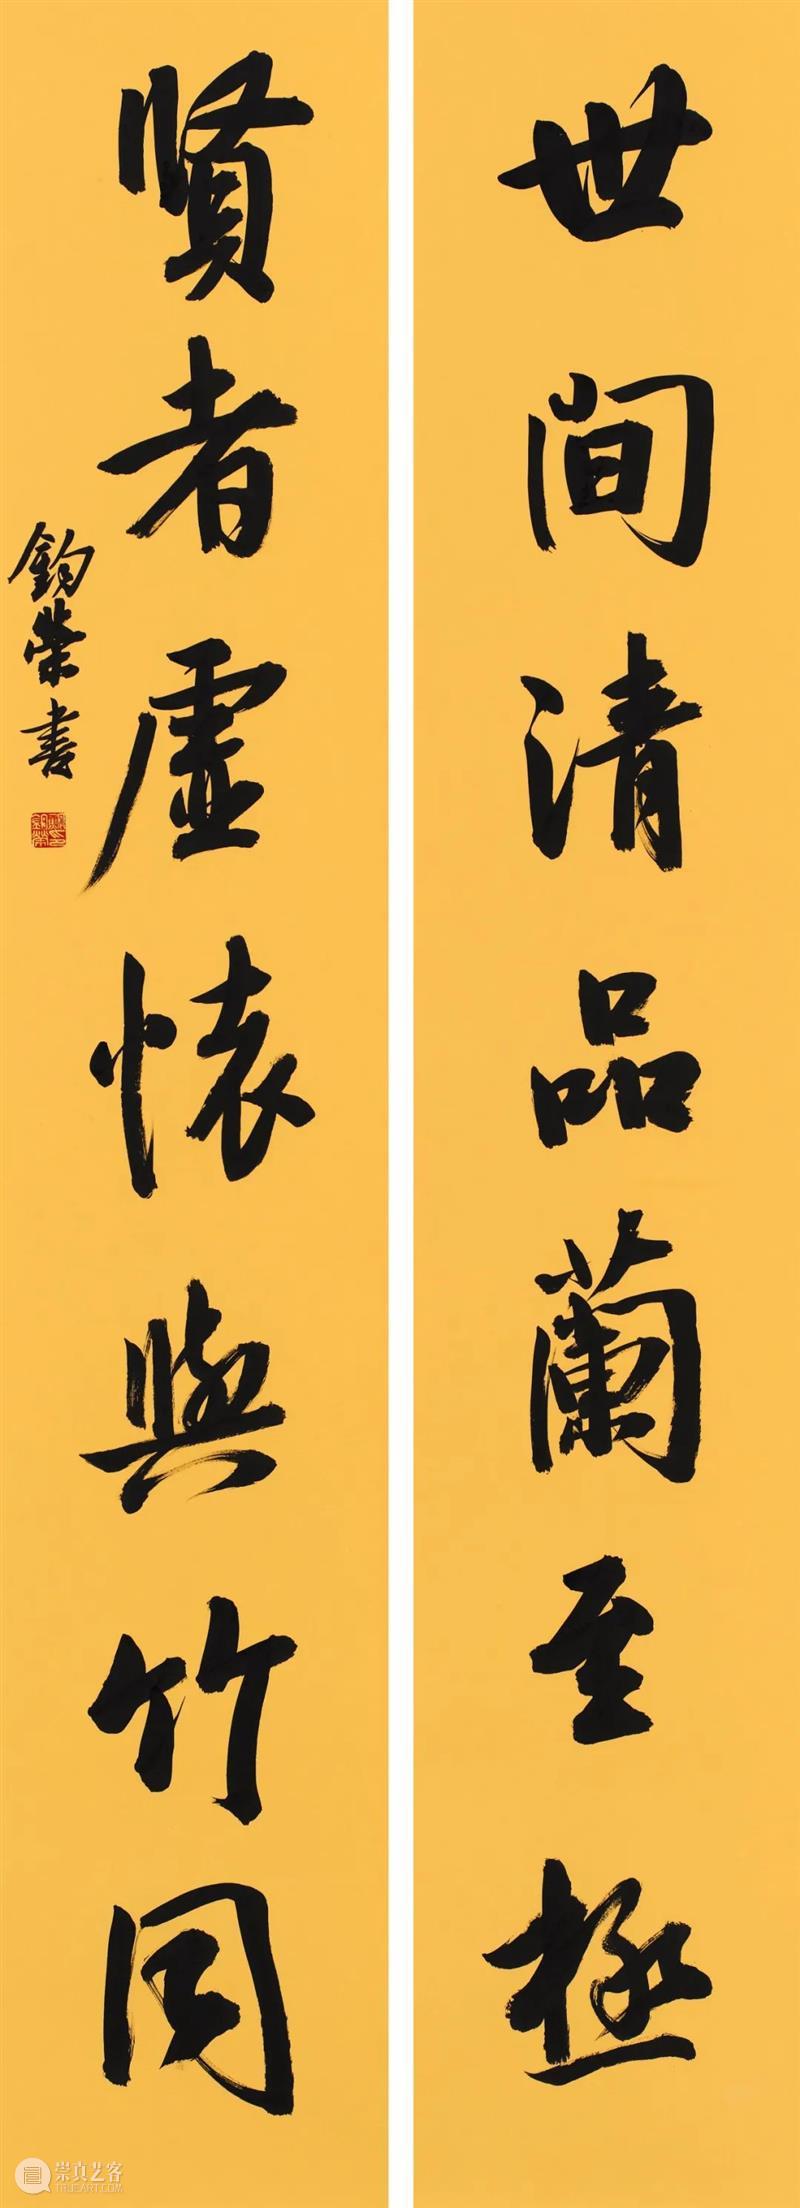 世間清品蘭至極
賢者虛懷與竹同
鈞榮書
崇真艺客
TRUEART.COM